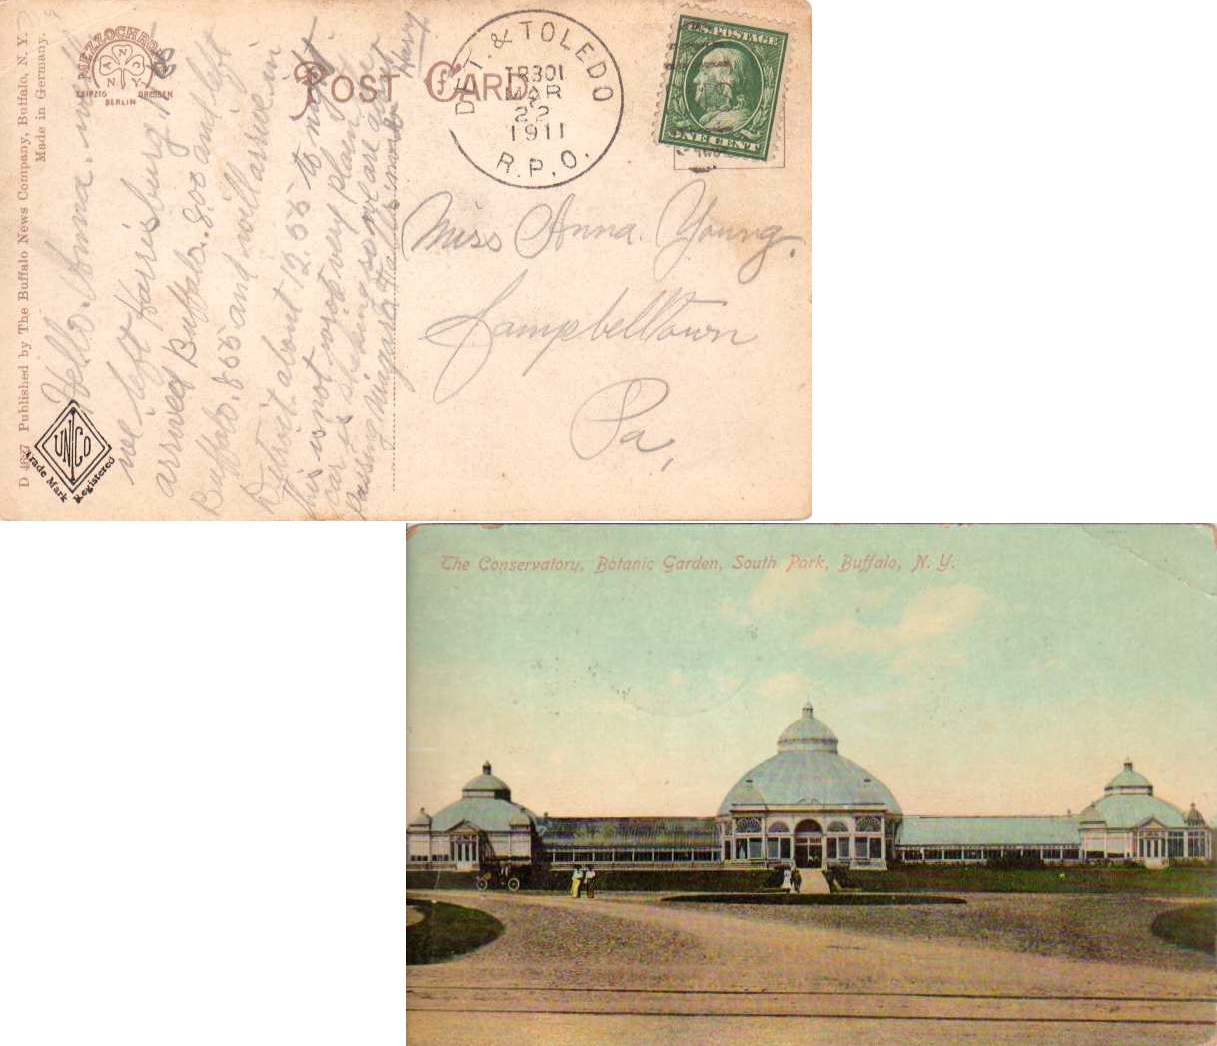 D 4627 Published by The Buffalo News Company, Buffalo, N. Y.
Made in Germany.
MEZZOCHROM
ANC
NY
LEIPZIG DRESDEN
BERLIN
POST CARD
DET. & TOLEDO
TR301
MAR
22
1911
R.P.O.
U.S. POSTAGE
ONE CENT
UNCO
Trade Mark Registered
Hello. Anna.
we left Harrisburg
arrived Buffalo. 8.00 and left
Buffalo. 8.55 and will arrive in
Detroit about 12.55 to night.
this is not very plain
car is shaking so we are
passing Niagara Falls
Miss Anna. Young.
Campbelltown
Pa,
The Conservatory, Botanic Garden, South Park, Buffalo, N. Y.